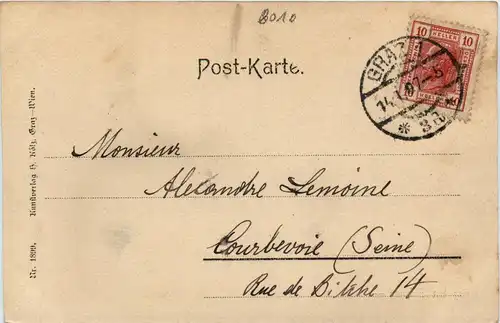 2010
Post-Karte.
10 HELLER 10
GRAZ
3a
Monsieur
Alexandre Lemoine
Courbevoie (Seine)
Rue de Bitche 14
Nr. 1899. Kunstverlag
Graz-Wien.